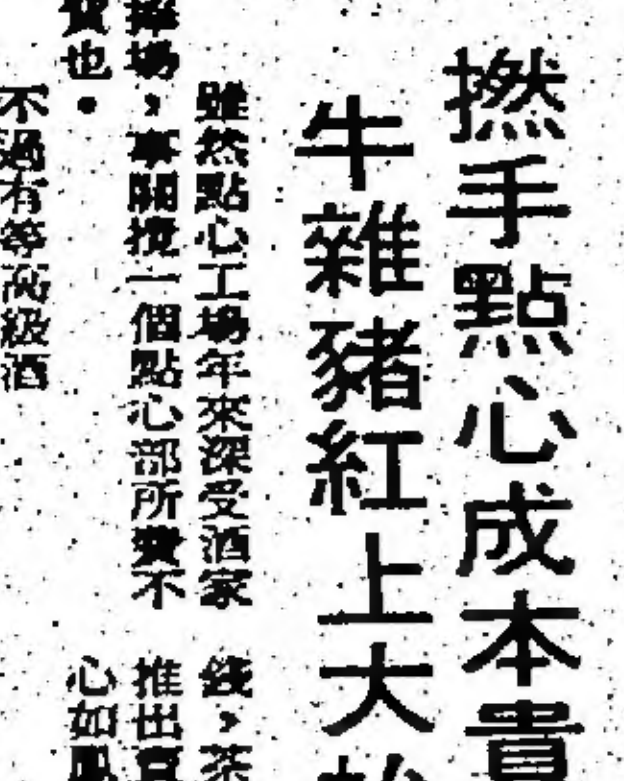 撚手點心成本貴
牛雜豬紅上大
雖然點心工場年來深受酒家
捧場，事關攪一個點心部所費不
貲也。
不過有等高級酒
錢，茶
推出
心如